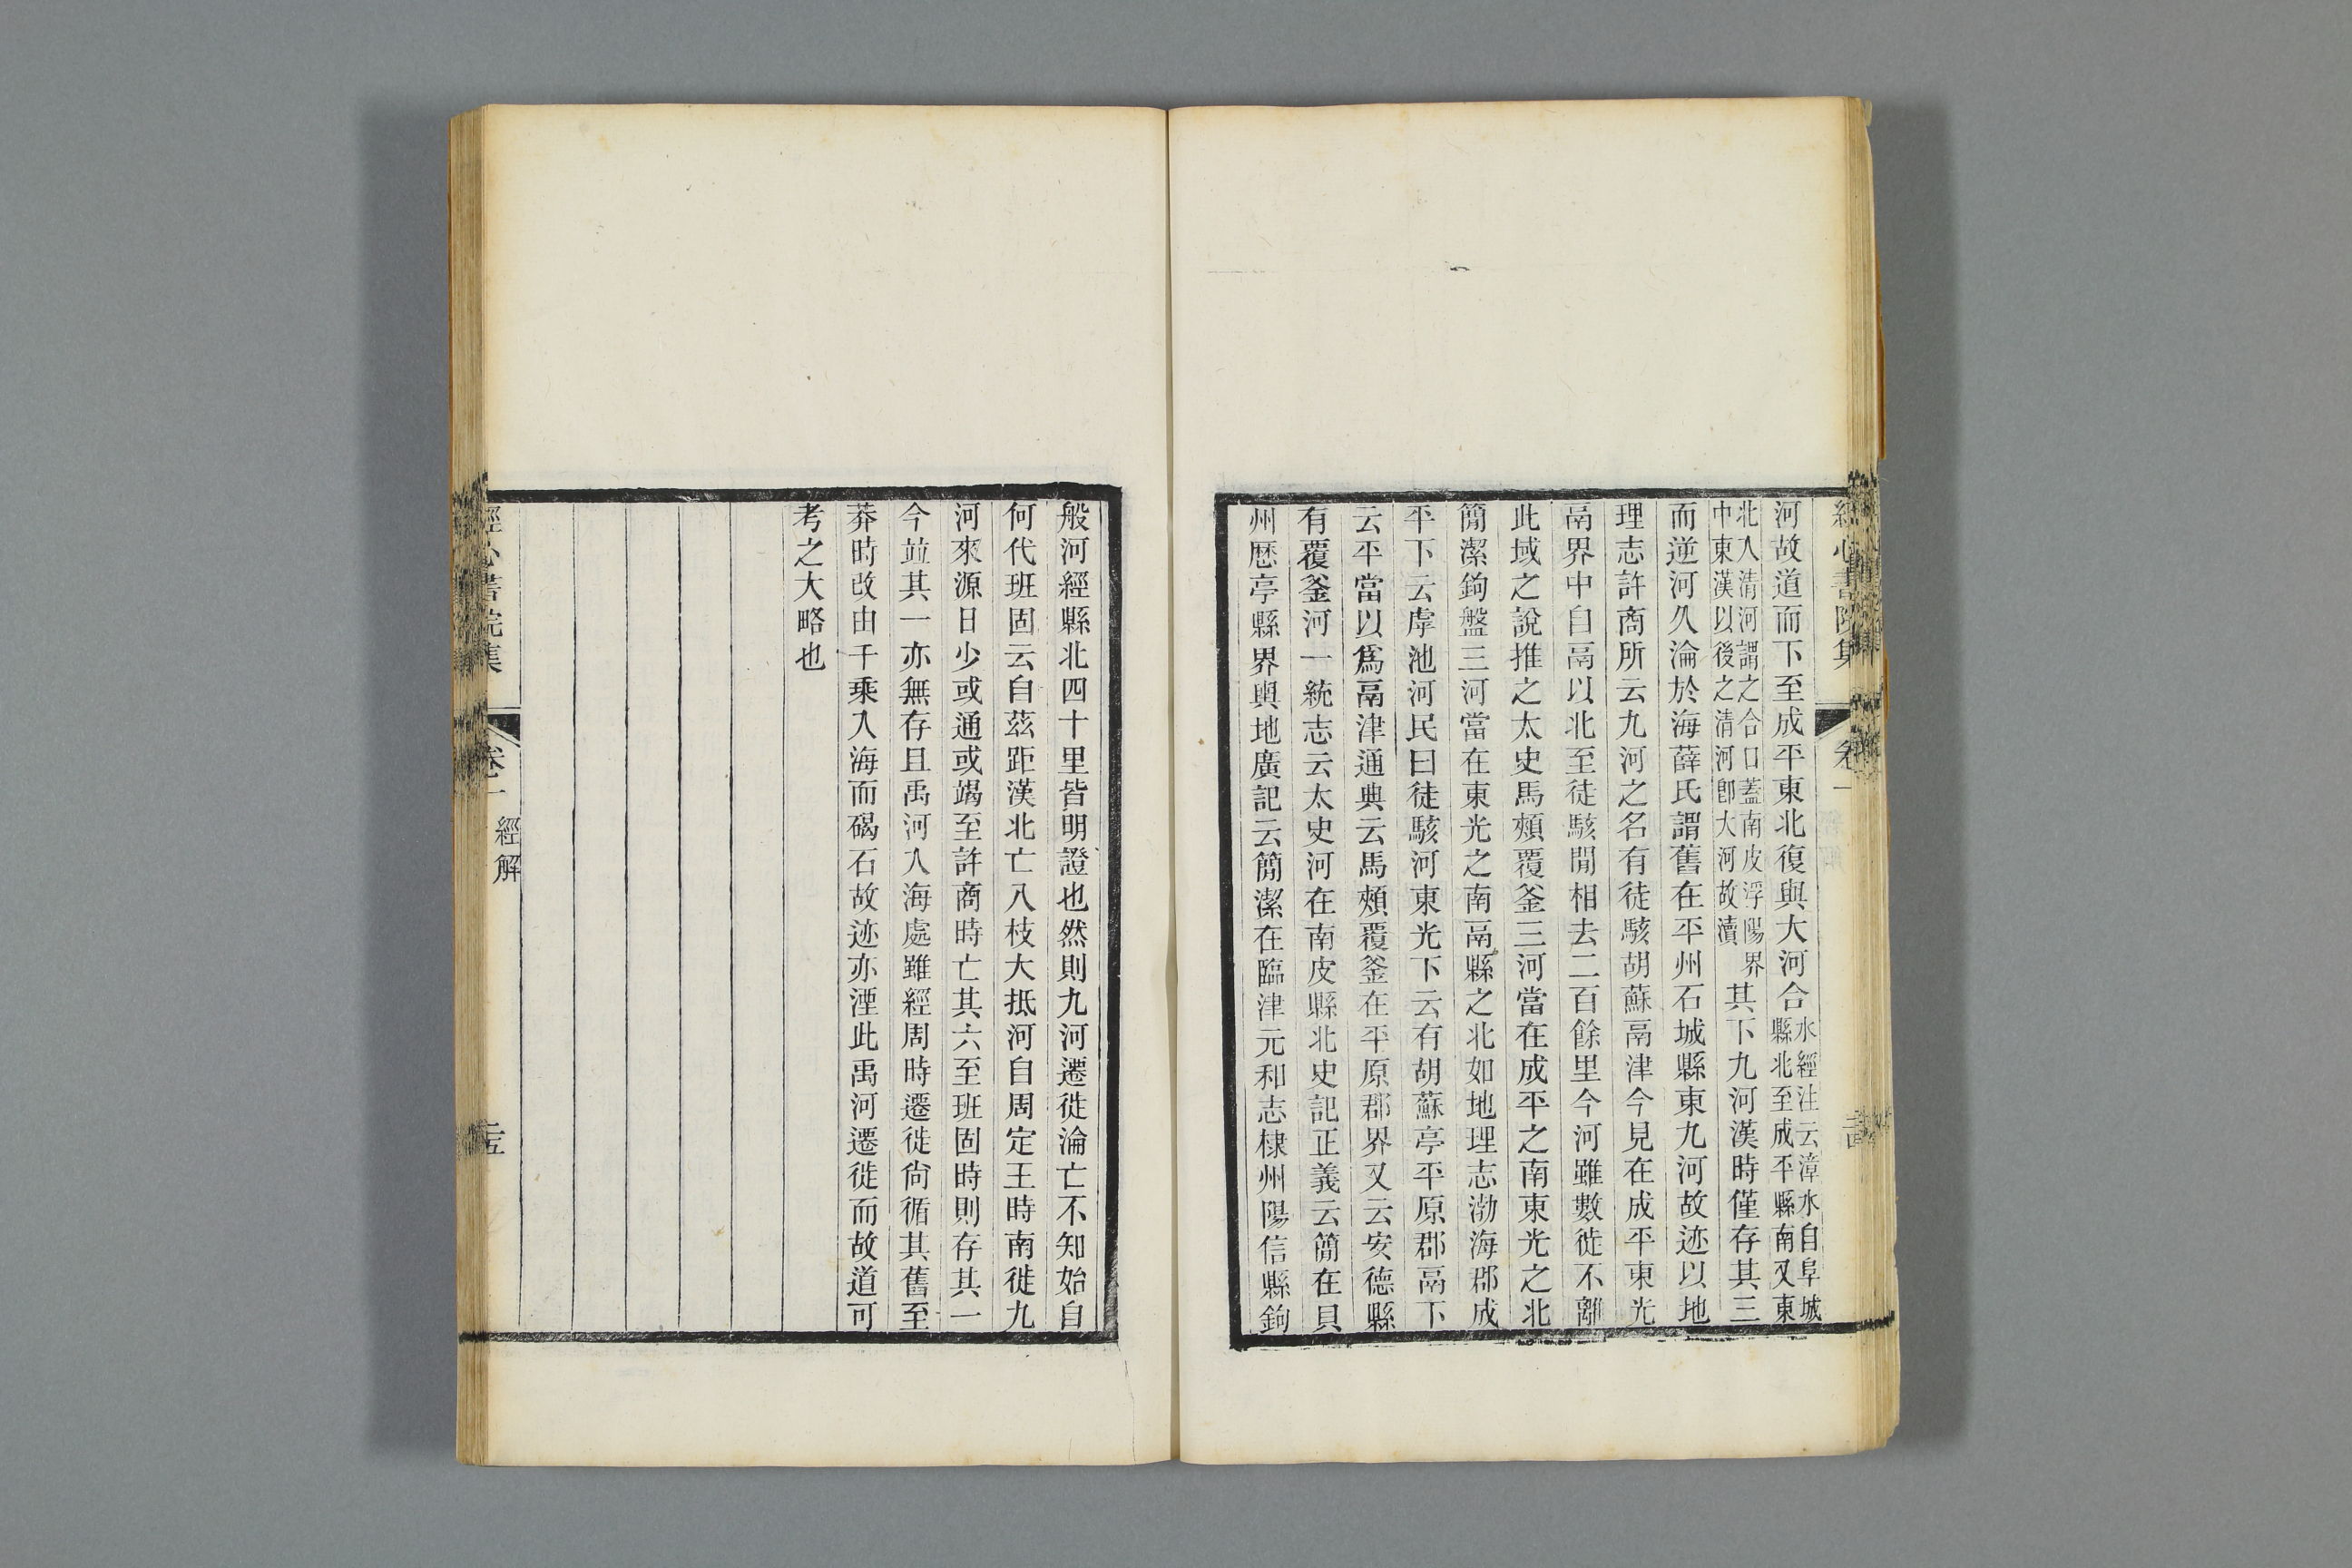 經心書院集 卷一
河故道而下至成平東北復與大河合水經注云漳水自阜城縣北至成平縣南又東
北入清河謂之合口蓋南皮浮陽界中東漢以後之清河卽大河故瀆其下九河漢時僅存其三
而逆河久淪於海薛氏謂舊在平州石城縣東九河故迹以地
理志許商所云九河之名有徒駭胡蘇鬲津今見在成平東光
鬲界中自鬲以北至徒駭閒相去二百餘里今河雖數徙不離
此域之說推之太史馬頰覆釜三河當在成平之南東光之北
簡潔鉤盤三河當在東光之南鬲縣之北如地理志渤海郡成
平下云虖池河民曰徒駭河東光下云有胡蘇亭平原郡鬲下
云平當以爲鬲津通典云馬頰覆釜在平原郡界又云安德縣
有覆釜河一統志云太史河在南皮縣北史記正義云簡在貝
州歷亭縣界輿地廣記云簡潔在臨津元和志棣州陽信縣鉤
般河經縣北四十里皆明證也然則九河遷徙淪亡不知始自
何代班固云自茲距漢北亡八枝大抵河自周定王時南徙九
河來源日少或通或竭至許商時亡其六至班固時則存其一
今並其一亦無存且禹河入海處雖經周時遷徙尙循其舊至
莽時改由千乘入海而碣石故迹亦湮此禹河遷徙而故道可
考之大略也
經心書院集 卷一 經解 二十五